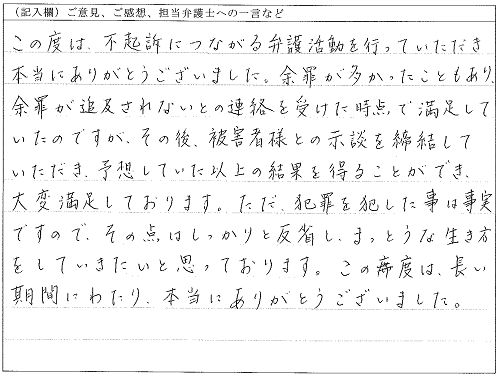 （記入欄）ご意見、ご感想、担当弁護士への一言など
この度は、不起訴につながる弁護活動を行っていただき
本当にありがとうございました。余罪が多かったこともあり、
余罪が追及されないとの連絡を受けた時点で満足して
いたのですが、その後、被害者様との示談を締結して
いただき、予想していた以上の結果を得ることができ、
大変満足しております。ただ、犯罪を犯した事は事実
ですので、その点はしっかりと反省し、まっとうな生き方
をしていきたいと思っております。この度は、長い
期間にわたり、本当にありがとうございました。